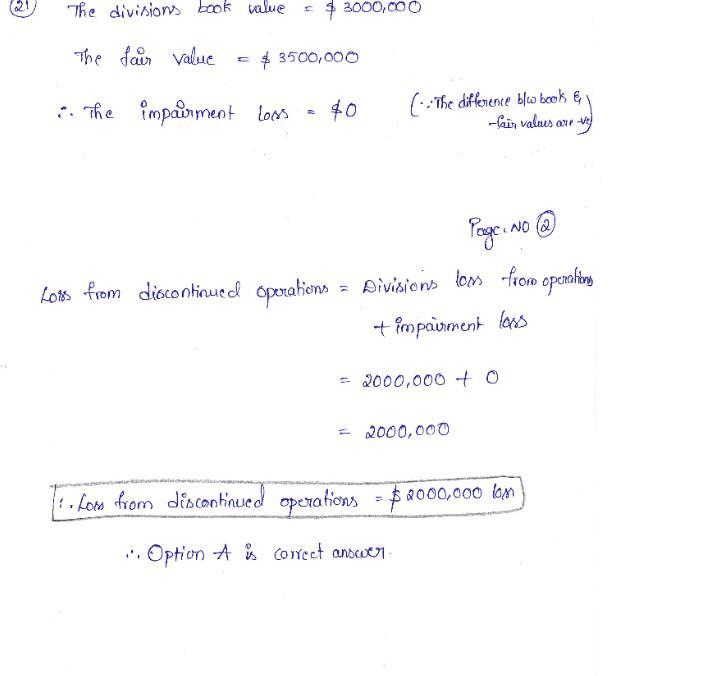 (21) The divisions book value = $ 3000,000
The fair value = $ 3500,000
∴ The impairment loss = $0 (∵ The difference b/w book &
fair values are -ve)
Page. NO (2)
Loss from discontinued operations = Divisions loss from operations
+ impairment loss
= 2000,000 + 0
= 2000,000
∴ Loss from discontinued operations = $ 2000,000 loss
∴ Option A is correct answer.